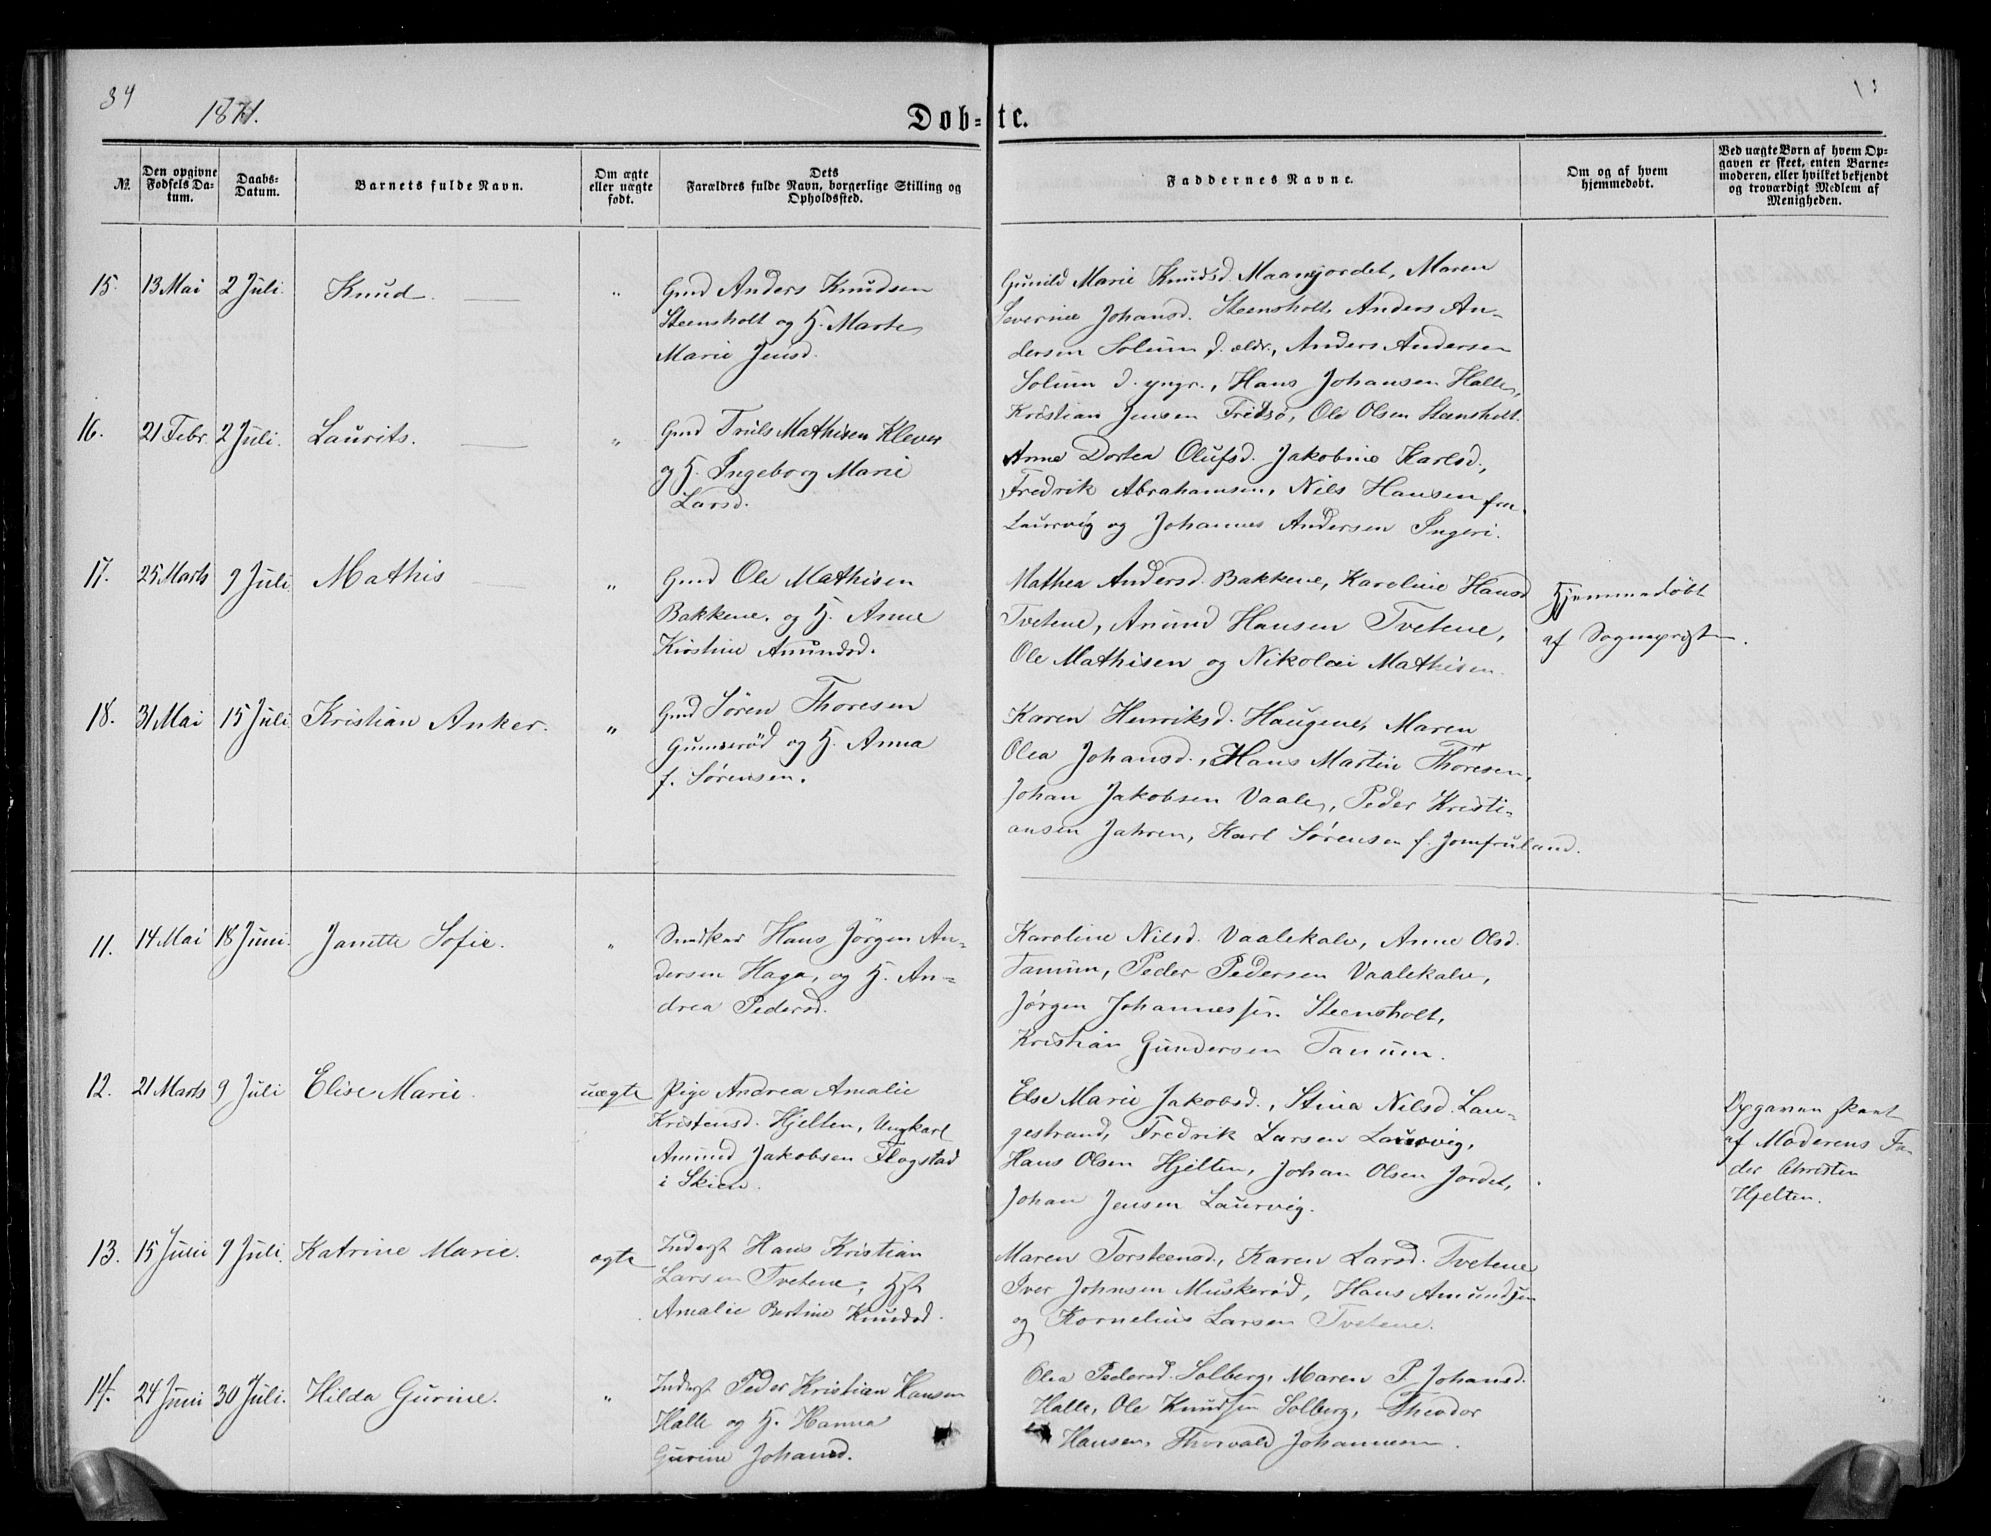 34
1871.
Døb-te.
№.
Den opgivne Fødsels Datum.
Daabs-Datum.
Barnets fulde Navn.
Om ægte eller uægte født.
Dets Forældres fulde Navn, borgerlige Stilling og Opholdssted.
Faddernes Navne.
Om og af hvem hjemmedøbt.
Ved uægte Børn af hvem Opgaven er skeet, enten Barnemoderen, eller hvilket bekjendt og troværdigt Medlem af Menigheden.
15. 13 Mai 2 Juli. Knud. „
Gmd Anders Knudsen
Steensholt og H. Marte
Marie Jensd.
Gunild Marie Knudsd. Maanejordet, Maren
Severine Johansd. Steensholt, Anders An-
dersen Solum d. ældr., Anders Andersen
Solum d. yngr., Hans Johansen Halle,
Kristian Jensen Fritsø, Ole Olsen Steensholt.
16. 21 Febr. 2 Juli. Laurits. „
Gmd Truls Mathisen Klever
og H. Ingeborg Marie
Larsd.
Anne Dortea Olufsd. Jakobine Karlsd.,
Fredrik Abrahamsen, Nils Hansen fra
Laurvig og Johannes Andersen Ingeri.
17. 25 Marts 9 Juli Mathis „
Gmd Ole Mathisen
Bakkene. og H. Anne
Kirstine Amundsd.
Mathea Andersd. Bakkene, Karoline Hansd
Tvetene, Amund Hansen Tvetene,
Ole Mathisen og Nikolai Mathisen.
Hjemmedøbt
af Sognepræsten.
18. 31 Mai 15 Juli Kristian Anker. „
Gmd Søren Thoresen
Gumserød og H. Anna
f. Sørensen.
Karen Henriksd. Haugene, Maren
Olea Johansd., Hans Martin Thoresen,
Johan Jakobsen Vaale, Peder Kristi-
ansen Jahren, Karl Sørensen f. Jomfruland.
11. 14 Mai 18 Juni. Janette Sofie. „
Snedker Hans Jørgen An-
dersen Haga, og H. An-
drea Pedersd.
Karoline Nilsd. Vaalekalv, Anne Olsd.
Tanum, Peder Pedersen Vaalekalv,
Jørgen Johannessen Steensholt,
Kristian Gundersen Tanum.
12. 21 Marts 9 Juli Elise Marie. uægte
Pige Andrea Amalie
Kristensd. Hjelten, Ungkarl
Amund Jakobsen Flogstad
i Skien.
Else Marie Jakobsd., Stina Nilsd. Lan-
gestrand, Fredrik Larsen Laurvig,
Hans Olsen Hjelten, Johan Olsen Jordet,
Johan Jensen Laurvig.
Opgaven skeet
af Moderens Fa-
der Christen
Hjelten.
13. 15 Juni 9 Juli. Katrine Marie. ægte
Inderst Hans Kristian
Larsen Tvetene, Hst
Amalie Bertine Knudsd.
Maren Torsteensd., Karen Larsd. Tvetene
Iver Johnsen Muskerød, Hans Amundsen
og Kornelius Larsen Tvetene.
14. 24 Juni 30 Juli. Hilda Gurine. „
Inderst Peder Kristian Hansen
Halle og H. Hanna
Gurine Johansd.
Olea Pedersd. Solberg, Maren P. Johansd.
Halle, Ole Knudsen Solberg, Theodor
Hansen, Thorvald Johannesen.